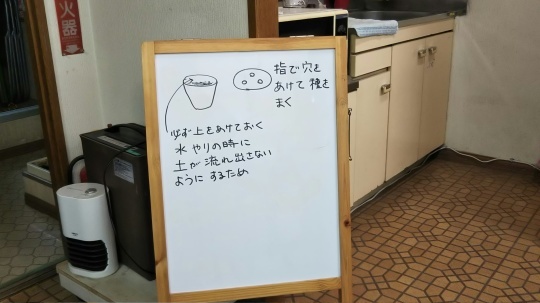 火器
指で穴を
あけて種を
まく
必ず上をあけておく
水やりの時に
土が流れ出さない
ようにするため